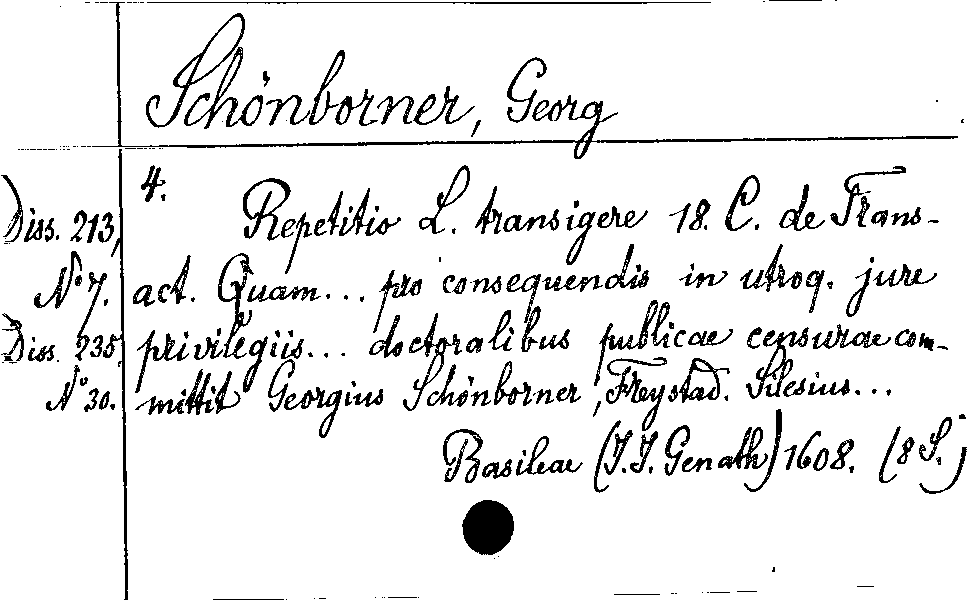 Schönborner, Georg
4.
Diss. 213, Repetitio L. transigere 18. C. de Trans-
No 7. act. Quam... pro consequendis in utroq. jure
Diss. 235, privilegiis... doctoralibus publicae censurae com-
No 30. mittit Georgius Schönborner, Freystad. Silesius...
Basileae (J. J. Genath) 1608. (8 S.)